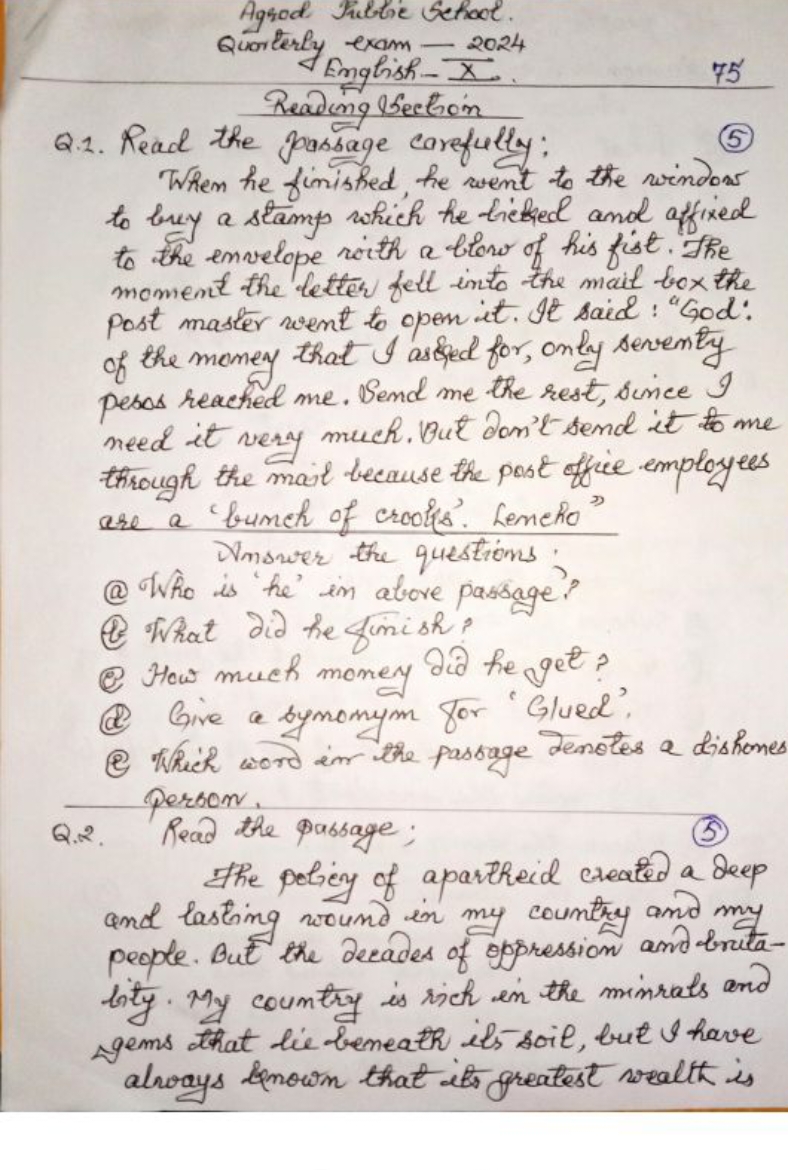 Agsod Public School.
Quarterly exam — 2024
English - X.
75
Reading Section
Q.1. Read the passage carefully; 5
When he finished, he went to the window
to buy a stamp which he licked and affixed
to the envelope with a blow of his fist. The
moment the letter fell into the mail box the
post master went to open it. It said : "God:
of the money that I asked for, only seventy
pesos reached me. Send me the rest, since I
need it very much. But don't send it to me
through the mail because the post office employees
are a 'bunch of crooks'. Lencho"
Answer the questions.
(a) Who is 'he' in above passage?
(b) What did he finish?
(c) How much money did he get?
(d) Give a synonym for 'Glued'.
(e) Which word in the passage denotes a dishones
person.
Q.2. Read the passage; 5
The policy of apartheid created a deep
and lasting wound in my country and my
people. But the decades of oppression and bruta-
lity. My country is rich in the minrals and
gems that lie beneath its soil, but I have
always known that its greatest wealth is